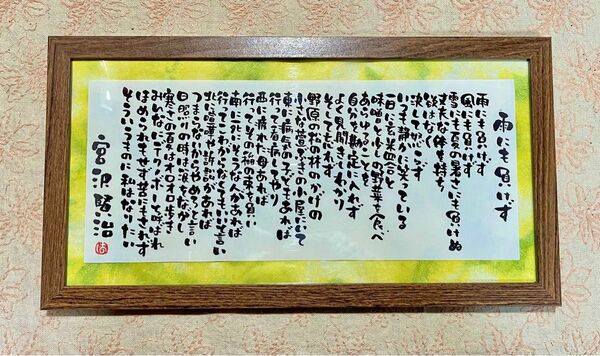 雨にも負けず
雨にも負けず
風にも負けず
雪にも夏の暑さにも負けぬ
丈夫な体を持ち
欲はなく
決して怒らず
いつも静かに笑っている
一日に玄米四合と
味噌と少しの野菜を食べ
あらゆることを
自分を勘定に入れず
よく見聞きしわかり
そして忘れず
野原の松の林のかげの
小さな萱ぶきの小屋にいて
東に病気の子どもあれば
行って看病してやり
西に疲れた母あれば
行ってその稲の束を負い
南に死にそうな人があれば
行ってこわがらなくてもいいと言い
北に喧嘩や訴訟があれば
つまらないからやめろと言い
日照りの時は涙をながし
寒さの夏はオロオロ歩き
みんなにデクノボーと呼ばれ
ほめられもせず苦にもされず
そういうものに私はなりたい
宮沢賢治